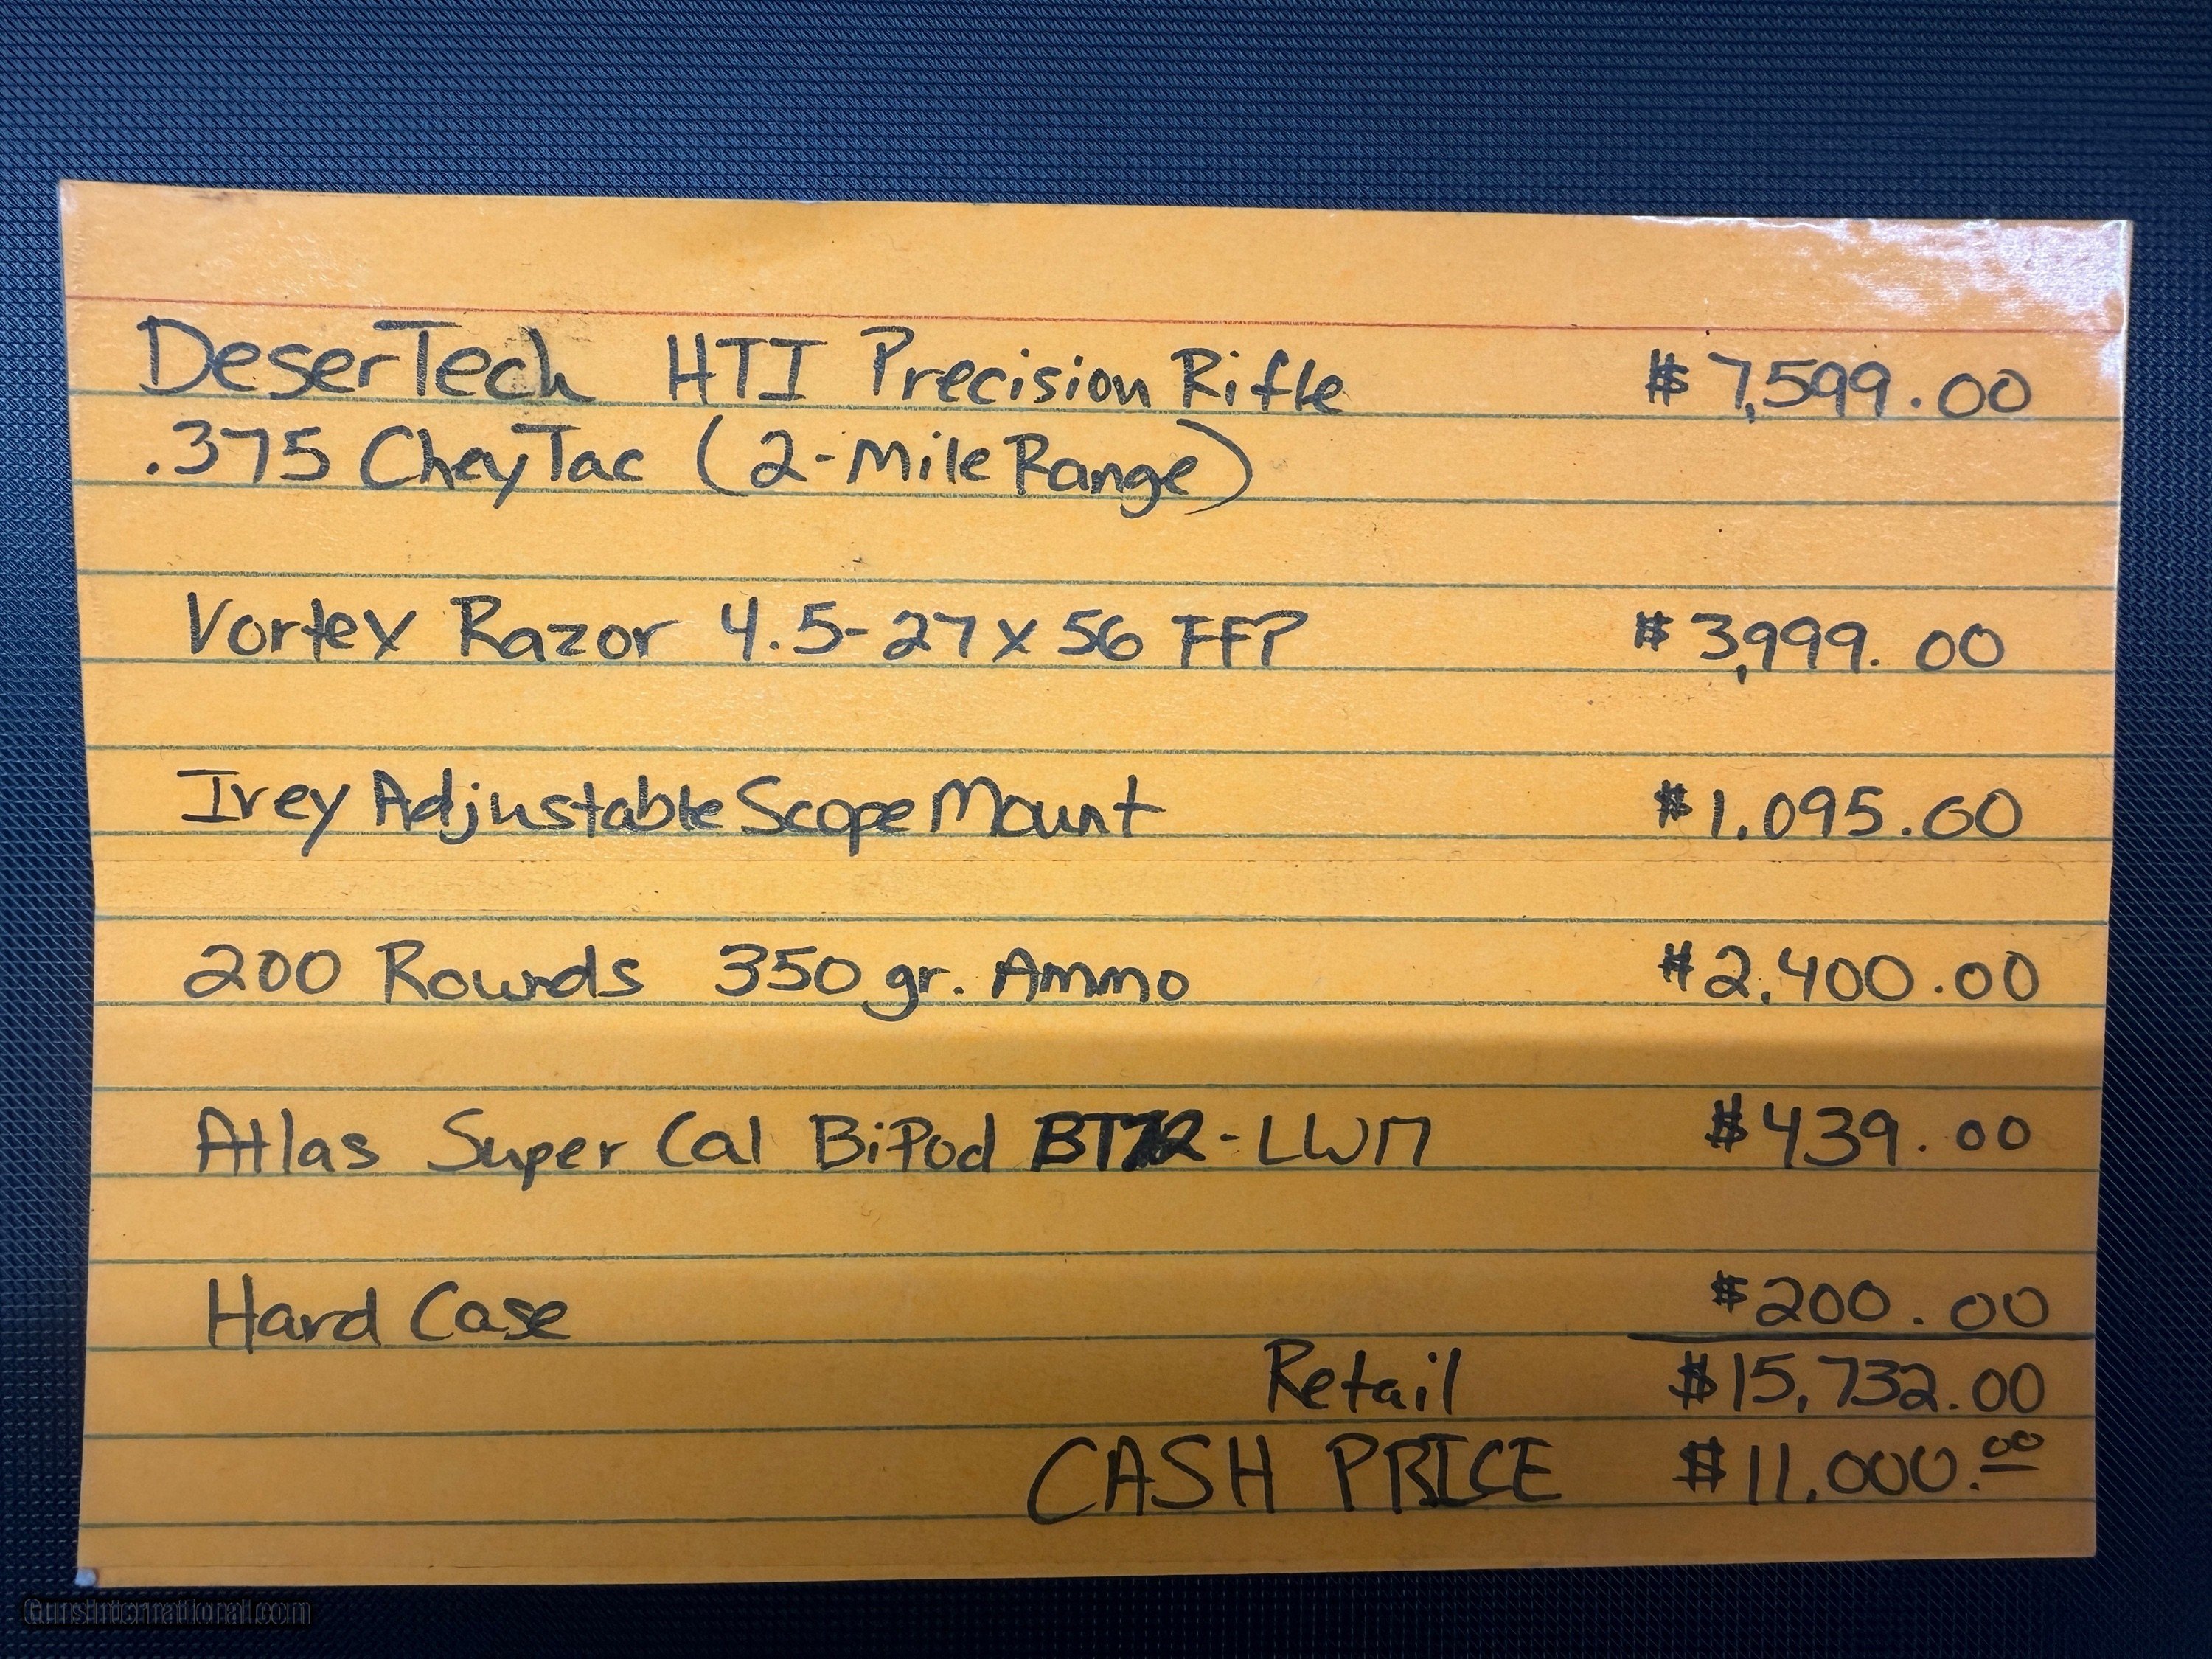 DeserTech HTI Precision Rifle $7,599.00
.375 CheyTac (2-Mile Range)
Vortex Razor 4.5-27x56 FFP $3,999.00
Ivey Adjustable Scope Mount $1,095.00
200 Rounds 350 gr. Ammo $2,400.00
Atlas Super Cal BiPod BT72-LW17 $439.00
Hard Case $200.00
Retail $15,732.00
CASH PRICE $11,000.00
GunsInternational.com